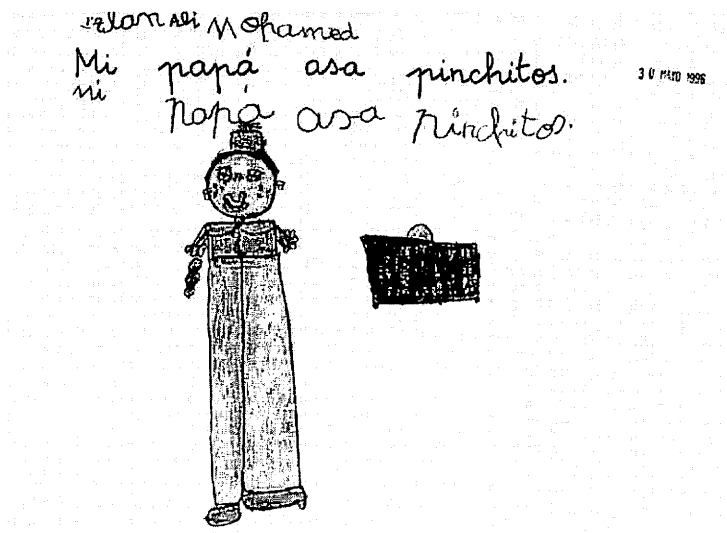 Izlan Ali Mohamed
Mi papá asa pinchitos.
30 MAYO 1996
mi
papá asa pinchitos.